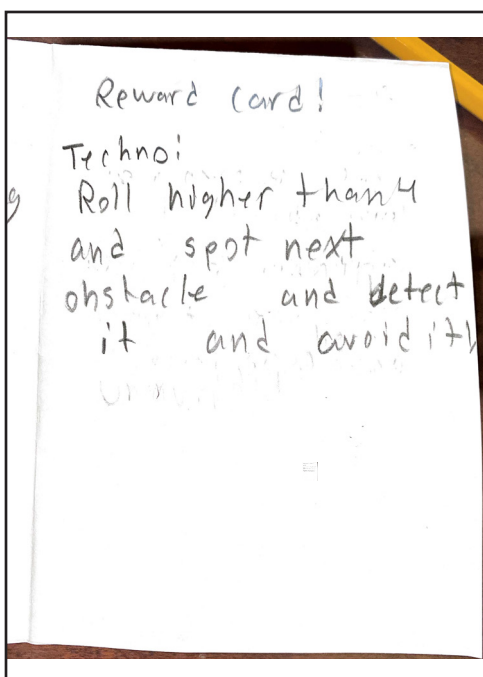 Reward Card!
Techno:
g Roll higher than 4
and spot next
obstacle and detect
it and avoid it!